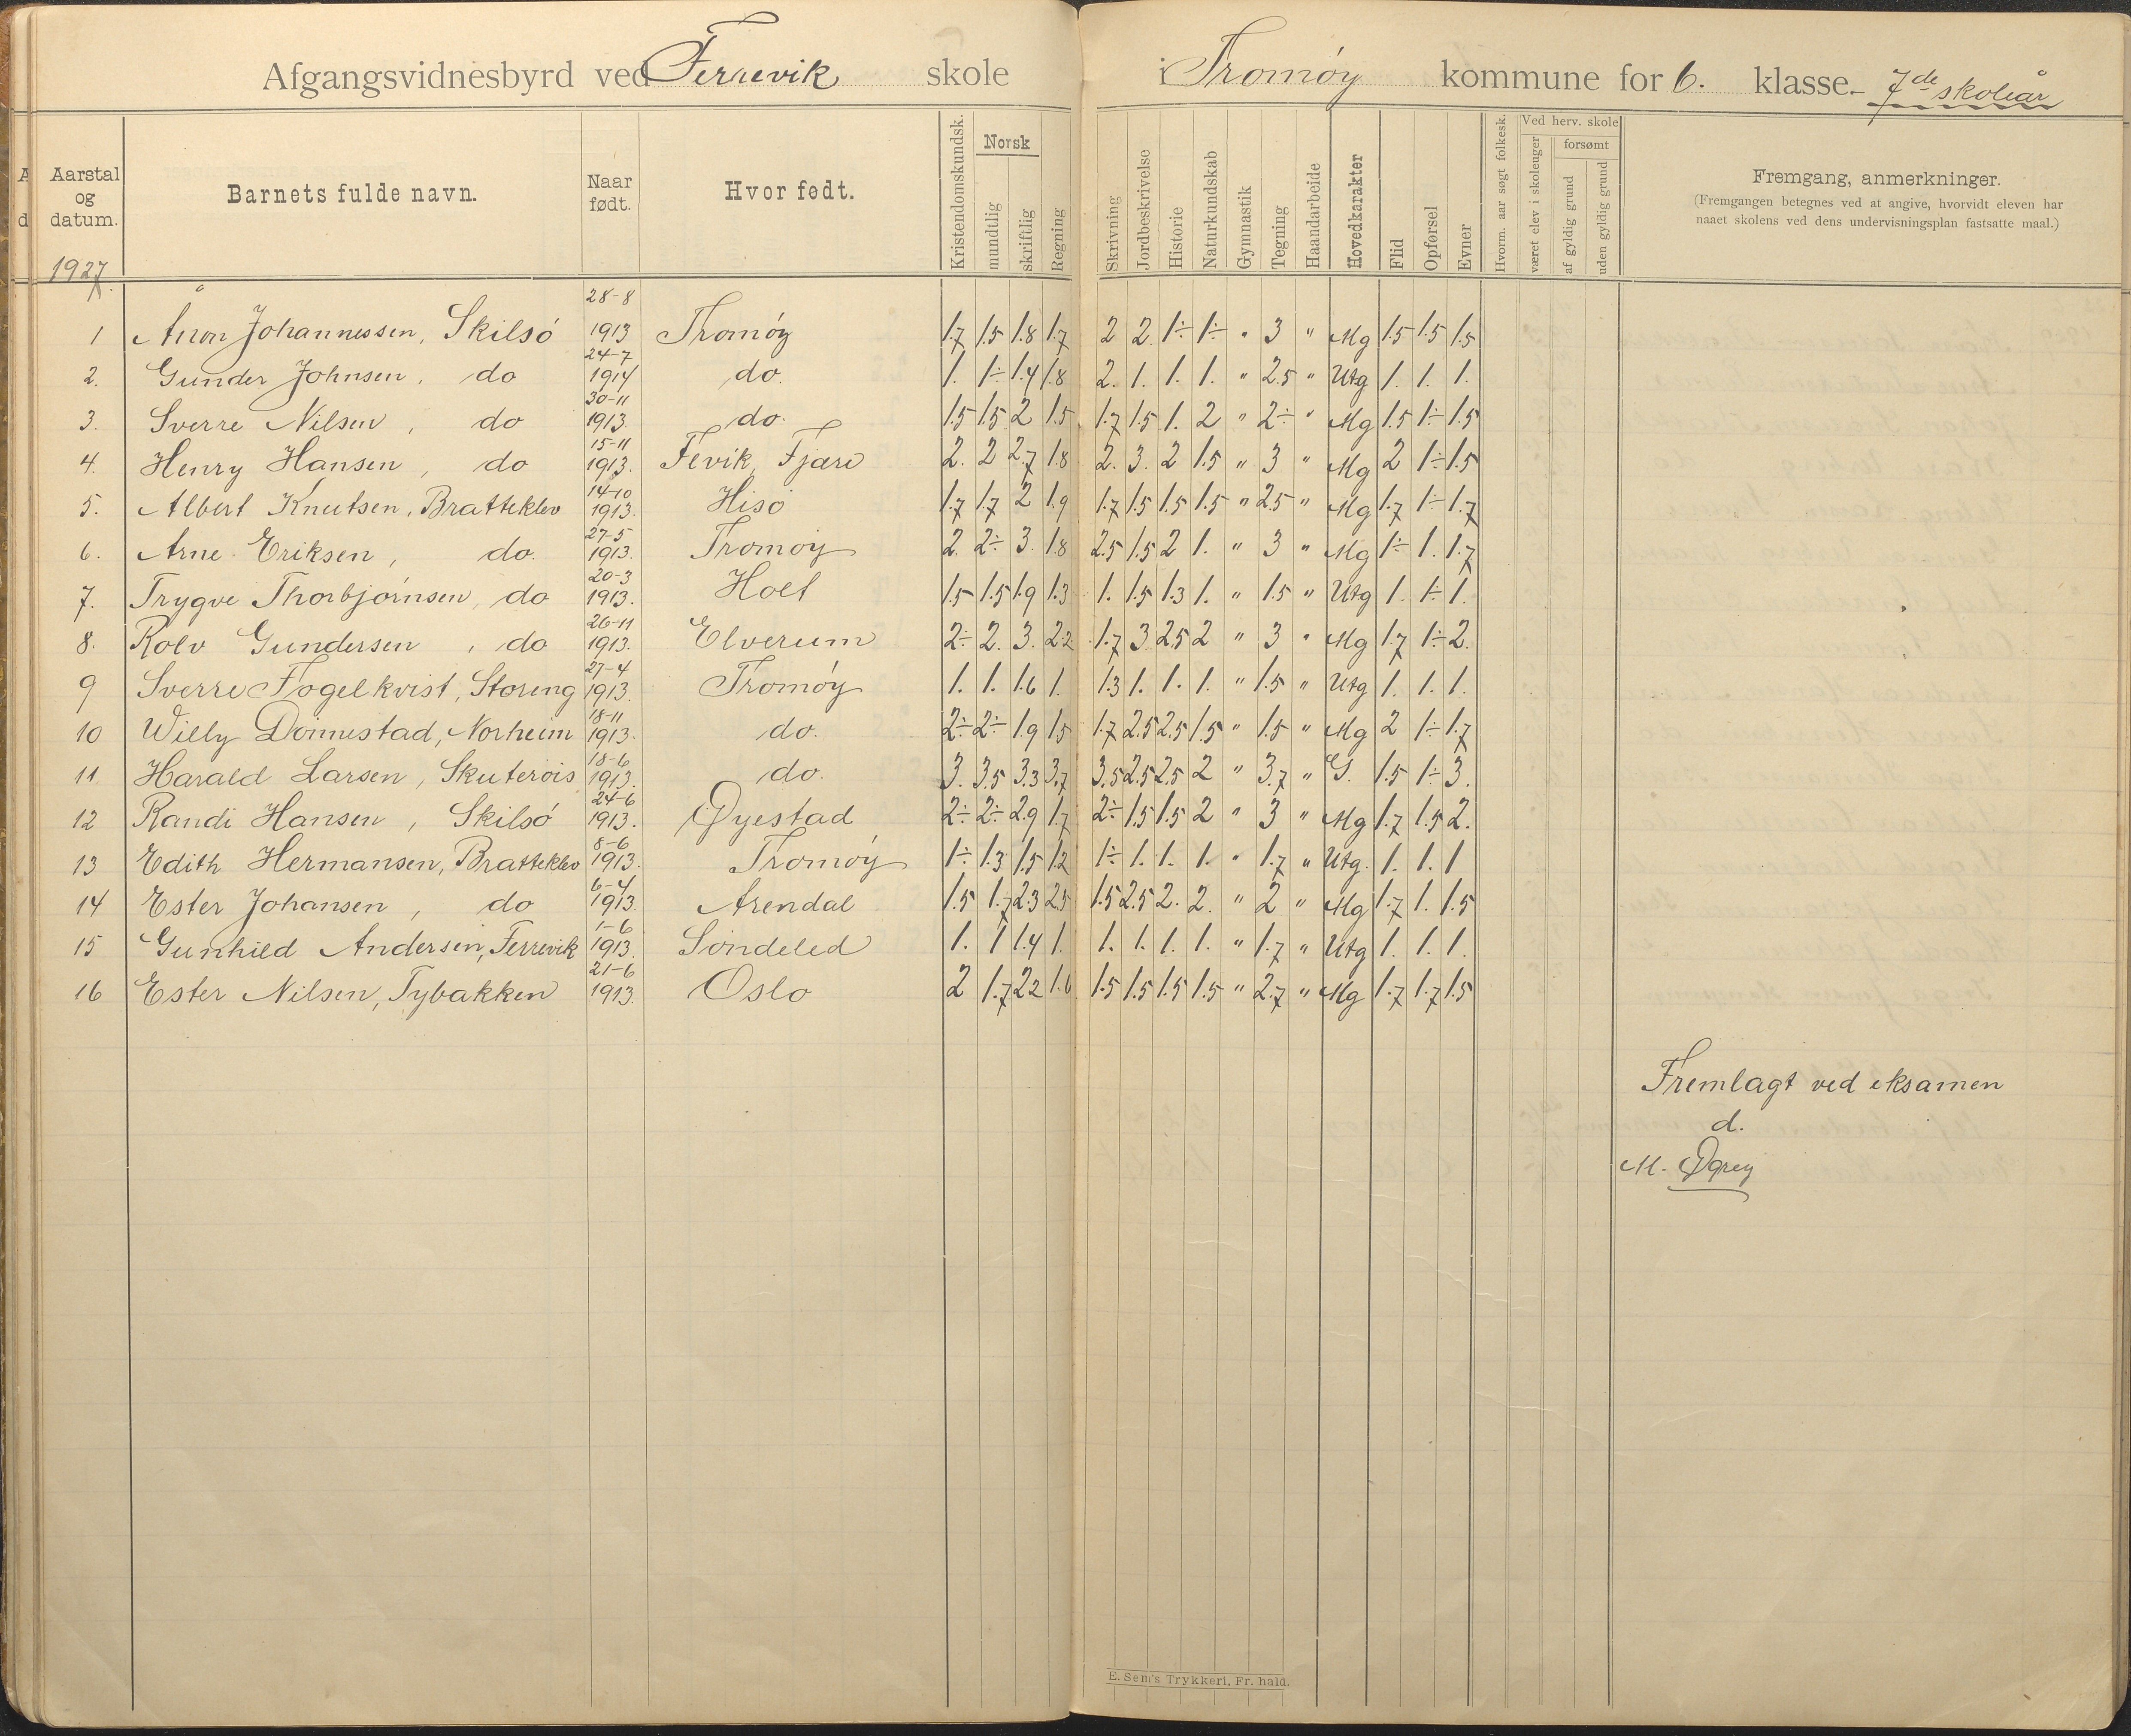 Afgangsvidnesbyrd ved Ferrevik skole i Tromøy kommune for 6. klasse. 7de skoleår
Aarstal og datum. Barnets fulde navn. Naar født. Hvor født. Kristendomskundsk. Norsk mundtlig skriftlig Regning Skrivning Jordbeskrivelse Historie Naturkundskab Gymnastik Tegning Haandarbeide Hovedkarakter Flid Opførsel Evner Hvorm. aar søgt folkesk. Ved herv. skole været elev i skoleuger forsømt af gyldig grund uden gyldig grund Fremgang, anmerkninger.
(Fremgangen betegnes ved at angive, hvorvidt eleven har
naaet skolens ved dens undervisningsplan fastsatte maal.)
1927
1 Johannessen, Skilsø 28-8 1913 Tromøy 1.7 1.5 1.8 1.7 2 2. 1÷ 1÷ " 3 " Mg 1.5 1.5 1.5
2. Gunder Johnsen, do 24-7 1914 do. 1. 1÷ 1.4 1.8 2. 1. 1. 1. " 2.5 " Utg 1. 1. 1.
3. Sverre Nilsen, do 30-11 1913. do. 1.5 1.5 2 1.5 1.7 1.5 1. 2 " 2÷ " Mg 1.5 1÷ 1.5
4. Henry Hansen, do 15-11 1913. Fevik, Fjære 2. 2 2.7 1.8 2. 3. 2 1.5 " 3 " Mg 2 1÷ 1.5
5. Albert Knutsen, Bratteklev 14-10 1913. Hisø 1.7 1.7 2 1.9 1.7 1.5 1.5 1.5 " 2.5 " Mg 1.7 1÷ 1.7
6. Arne Eriksen, do. 27-5 1913. Tromøy 2. 2÷ 3. 1.8 2.5 1.5 2 1. " 3 " Mg 1÷ 1. 1.7
7. Trygve Thorbjørnsen, do 20-3 1913. Holt 1.5 1.5 1.9 1.3 1. 1.5 1.3 1. " 1.5 " Utg 1. 1÷ 1.
8. Rolv Gundersen, do 26-11 1913. Elverum 2÷ 2. 3. 2.2 1.7 3 2.5 2 " 3 " Mg 1.7 1÷ 2.
9 Sverre Fogelkvist, Støring 27-4 1913. Tromøy 1. 1. 1.6 1. 1.3 1. 1. 1. " 1.5 " Utg 1. 1. 1.
10 Willy Dønnestad, Norheim 18-11 1913. do. 2÷ 2÷ 1.9 1.5 1.7 2.5 2.5 1.5 " 1.5 " Mg 2 1÷ 1.7
11. Harald Larsen, Skuterøis 18-6 1913. do. 3. 3.5 3.3 3.7 3.5 2.5 2.5 2 " 3.7 " G. 1.5 1÷ 3.
12 Randi Hansen, Skilsø 24-6 1913. Øyestad 2÷ 2÷ 2.9 1.7 2÷ 1.5 1.5 2 " 3 " Mg 1.7 1.5 2.
13 Edith Hermansen, Bratteklev 8-6 1913. Tromøy 1÷ 1.3 1.5 1.2 1÷ 1. 1. 1. " 1.7 " Utg. 1. 1. 1
14 Ester Johansen, do 6-4 1913. Arendal 1.5 1.7 2.3 2.5 1.5 2.5 2. 2. " 2 " Mg 1.7 1. 1.5
15 Gunhild Andersen, Ferrevik 1-6 1913. Søndeled 1. 1 1.4 1. 1. 1. 1. 1. " 1.7 " Utg 1. 1. 1.
16 Ester Nilsen, Tybakken 21-6 1913. Oslo 2 1.7 2.2 1.6 1.5 1.5 1.5 1.5 " 2.7 " Mg 1.7 1.7 1.5
Fremlagt ved eksamen
d.
M. Øgrey
E. Sem's Trykkeri, Fr. hald.